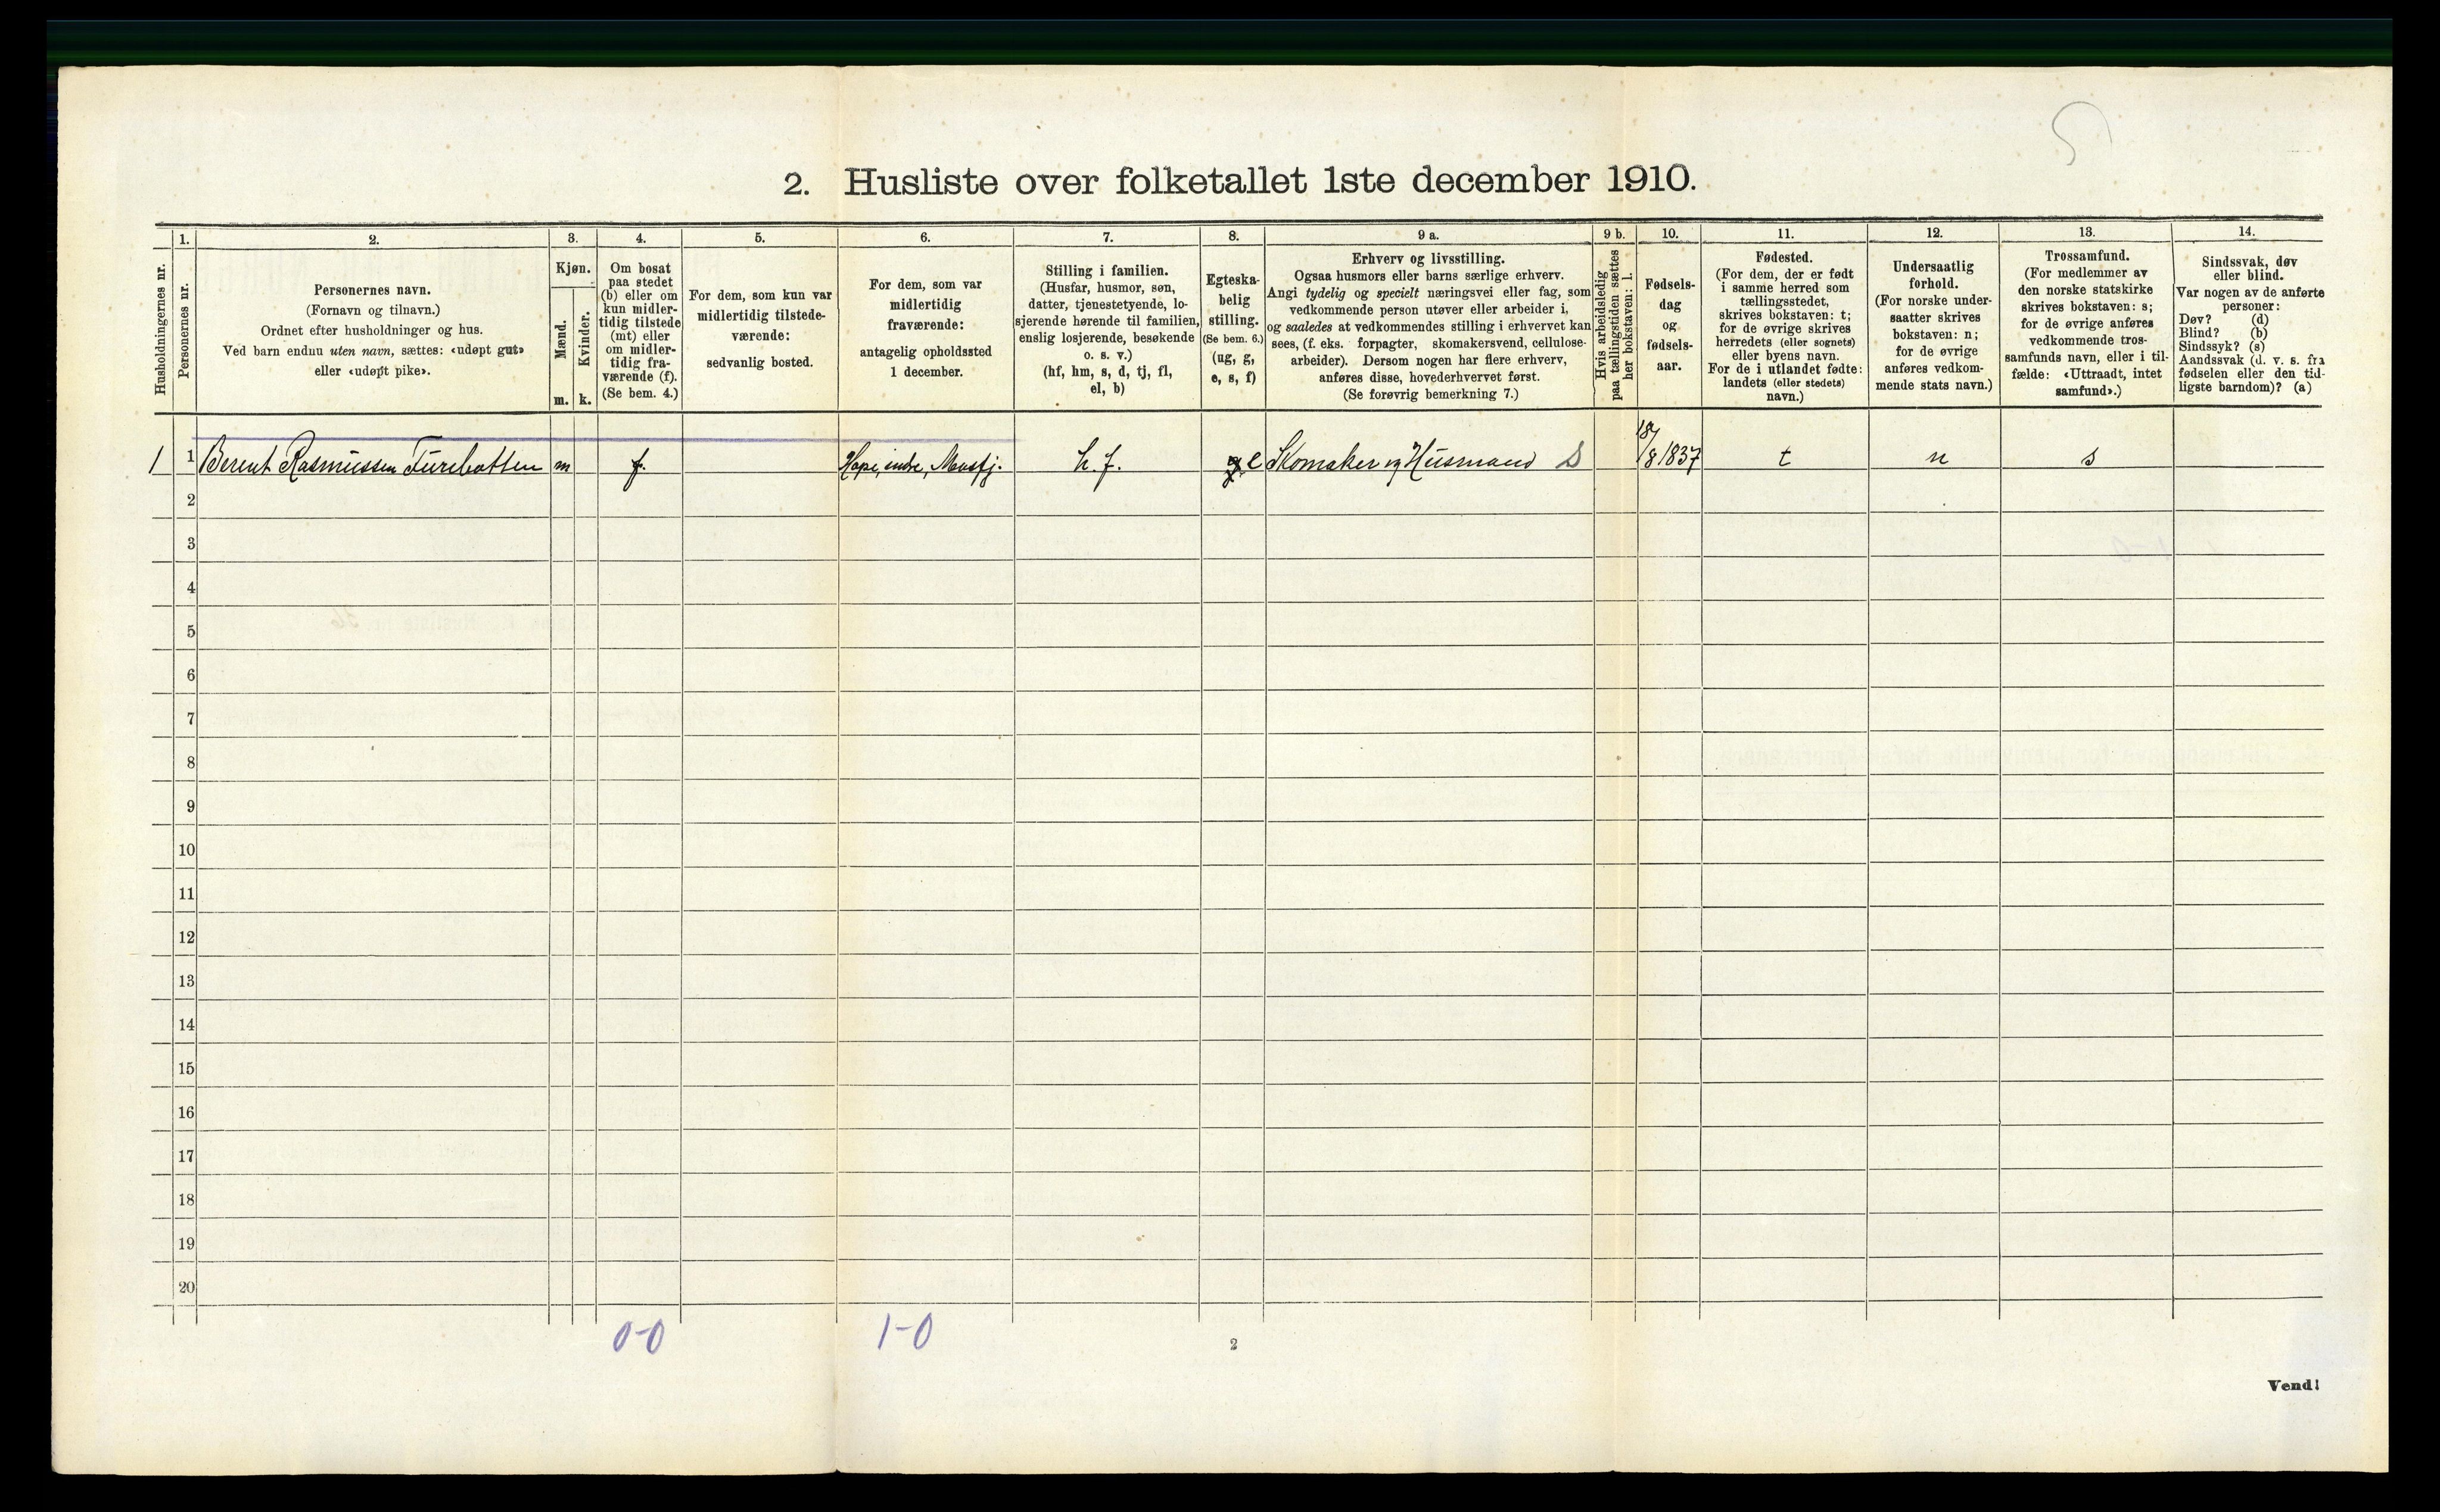 2. Husliste over folketallet 1ste december 1910.
Husholdningernes nr.
1.
Personernes nr.
2.
Personernes navn.
(Fornavn og tilnavn.)
Ordnet efter husholdninger og hus.
Ved barn endnu uten navn, sættes: «udøpt gut»
eller «udøpt pike».
3.
Kjøn.
Mænd.
m.
Kvinder.
k.
4.
Om bosat
paa stedet
(b) eller om
kun midler-
tidig tilstede
(mt) eller
om midler-
tidig fra-
værende (f).
(Se bem. 4.)
5.
For dem, som kun var
midlertidig tilstede-
værende:
sedvanlig bosted.
6.
For dem, som var
midlertidig
fraværende:
antagelig opholdssted
1 december.
7.
Stilling i familien.
(Husfar, husmor, søn,
datter, tjenestetyende, lo-
sjerende hørende til familien,
enslig losjerende, besøkende
o. s. v.)
(hf, hm, s, d, tj, fl,
el, b)
8.
Egteska-
belig
stilling.
(Se bem. 6.)
(ug, g,
e, s, f)
9 a.
Erhverv og livsstilling.
Ogsaa husmors eller barns særlige erhverv.
Angi tydelig og specielt næringsvei eller fag, som
vedkommende person utøver eller arbeider i,
og saaledes at vedkommendes stilling i erhvervet kan
sees, (f. eks. forpagter, skomakersvend, cellulose-
arbeider). Dersom nogen har flere erhverv,
anføres disse, hovederhvervet først.
(Se forøvrig bemerkning 7.)
9 b.
Hvis arbeidsledig
paa tællingstiden sættes
her bokstaven: l.
10.
Fødsels-
dag
og
fødsels-
aar.
11.
Fødested.
(For dem, der er født
i samme herred som
tællingsstedet,
skrives bokstaven: t;
for de øvrige skrives
herredets (eller sognets)
eller byens navn.
For de i utlandet fødte:
landets (eller stedets)
navn.)
12.
Undersaatlig
forhold.
(For norske under-
saatter skrives
bokstaven: n;
for de øvrige
anføres vedkom-
mende stats navn.)
13.
Trossamfund.
(For medlemmer av
den norske statskirke
skrives bokstaven: s;
for de øvrige anføres
vedkommende tros-
samfunds navn, eller i til-
fælde: «Uttraadt, intet
samfund».)
14.
Sindssvak, døv
eller blind.
Var nogen av de anførte
personer:
Døv? (d)
Blind? (b)
Sindssyk? (s)
Aandssvak (d. v. s. fra
fødselen eller den tid-
ligste barndom)? (a)
1 1 Berent Rasmussen m f. Hope, indre, h. f. e Skomaker og Husmand S 18/8 1837 t n s
2
3
4
5
6
7
8
9
10
11
12
13
14
15
16
17
18
19
20
0-0 1-0
2
Vend!